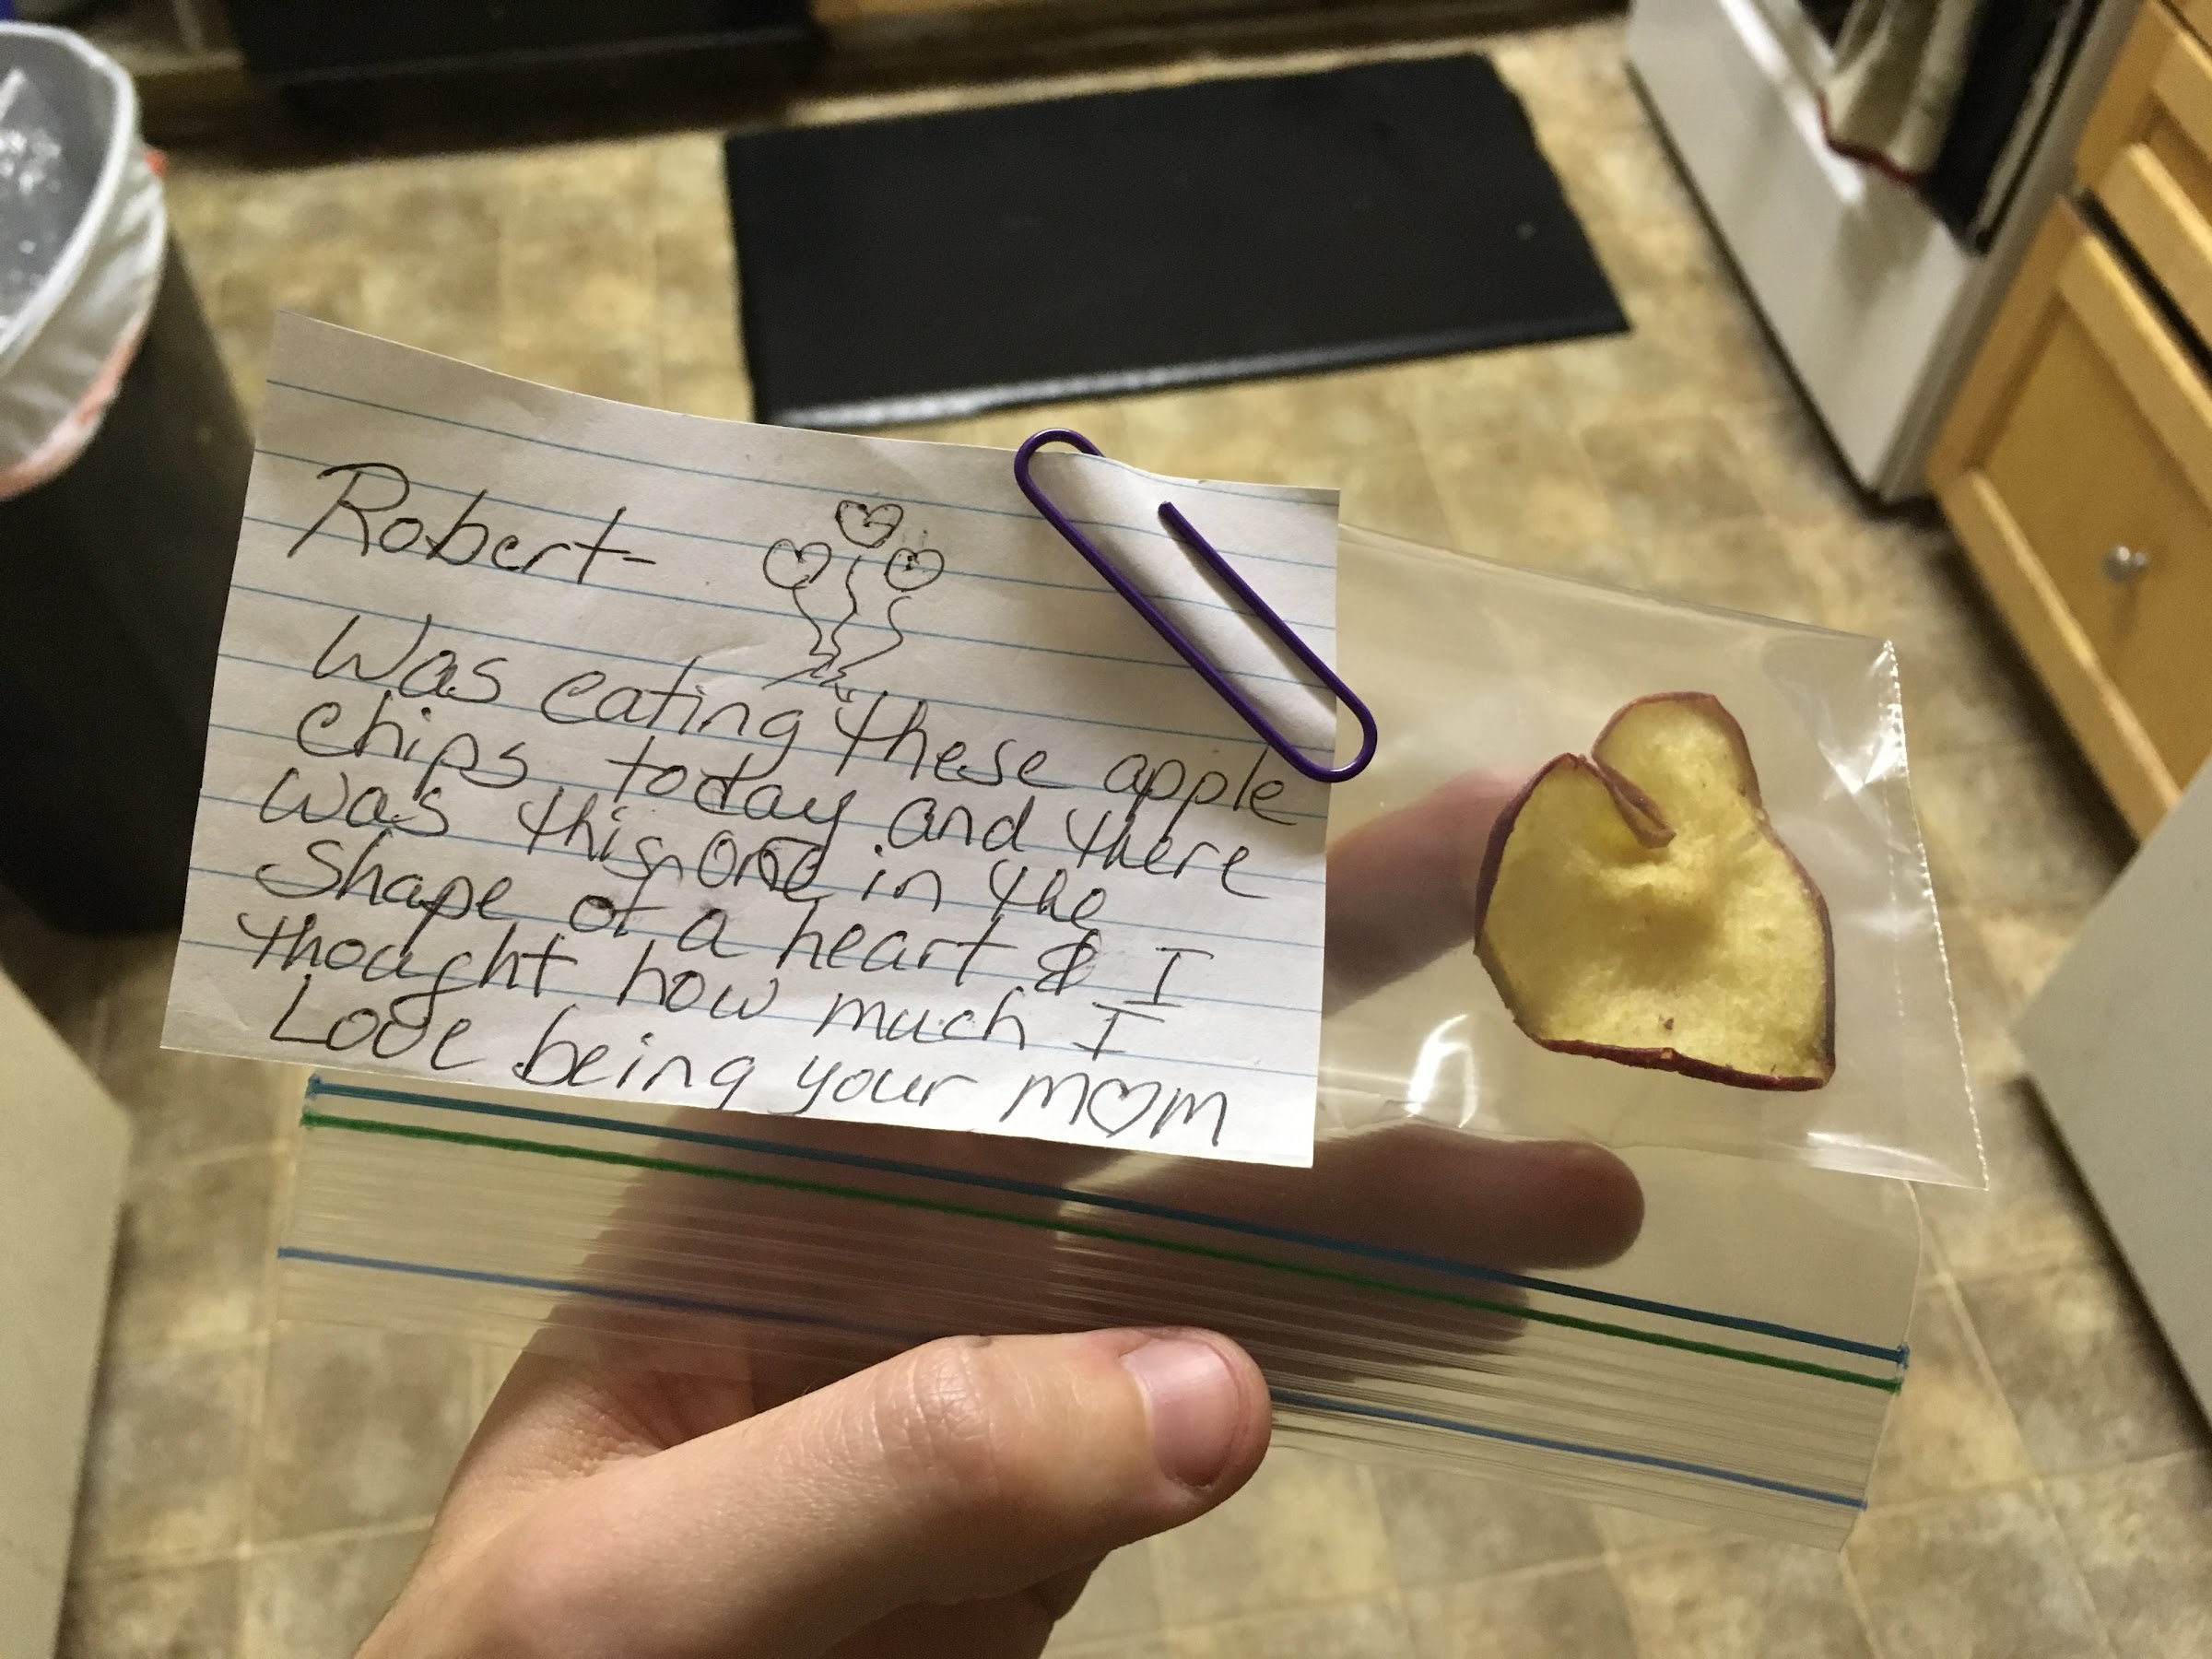 Robert-
Was eating these apple
chips today and there
was this one in the
shape of a heart & I
thought how much I
Love being your mom